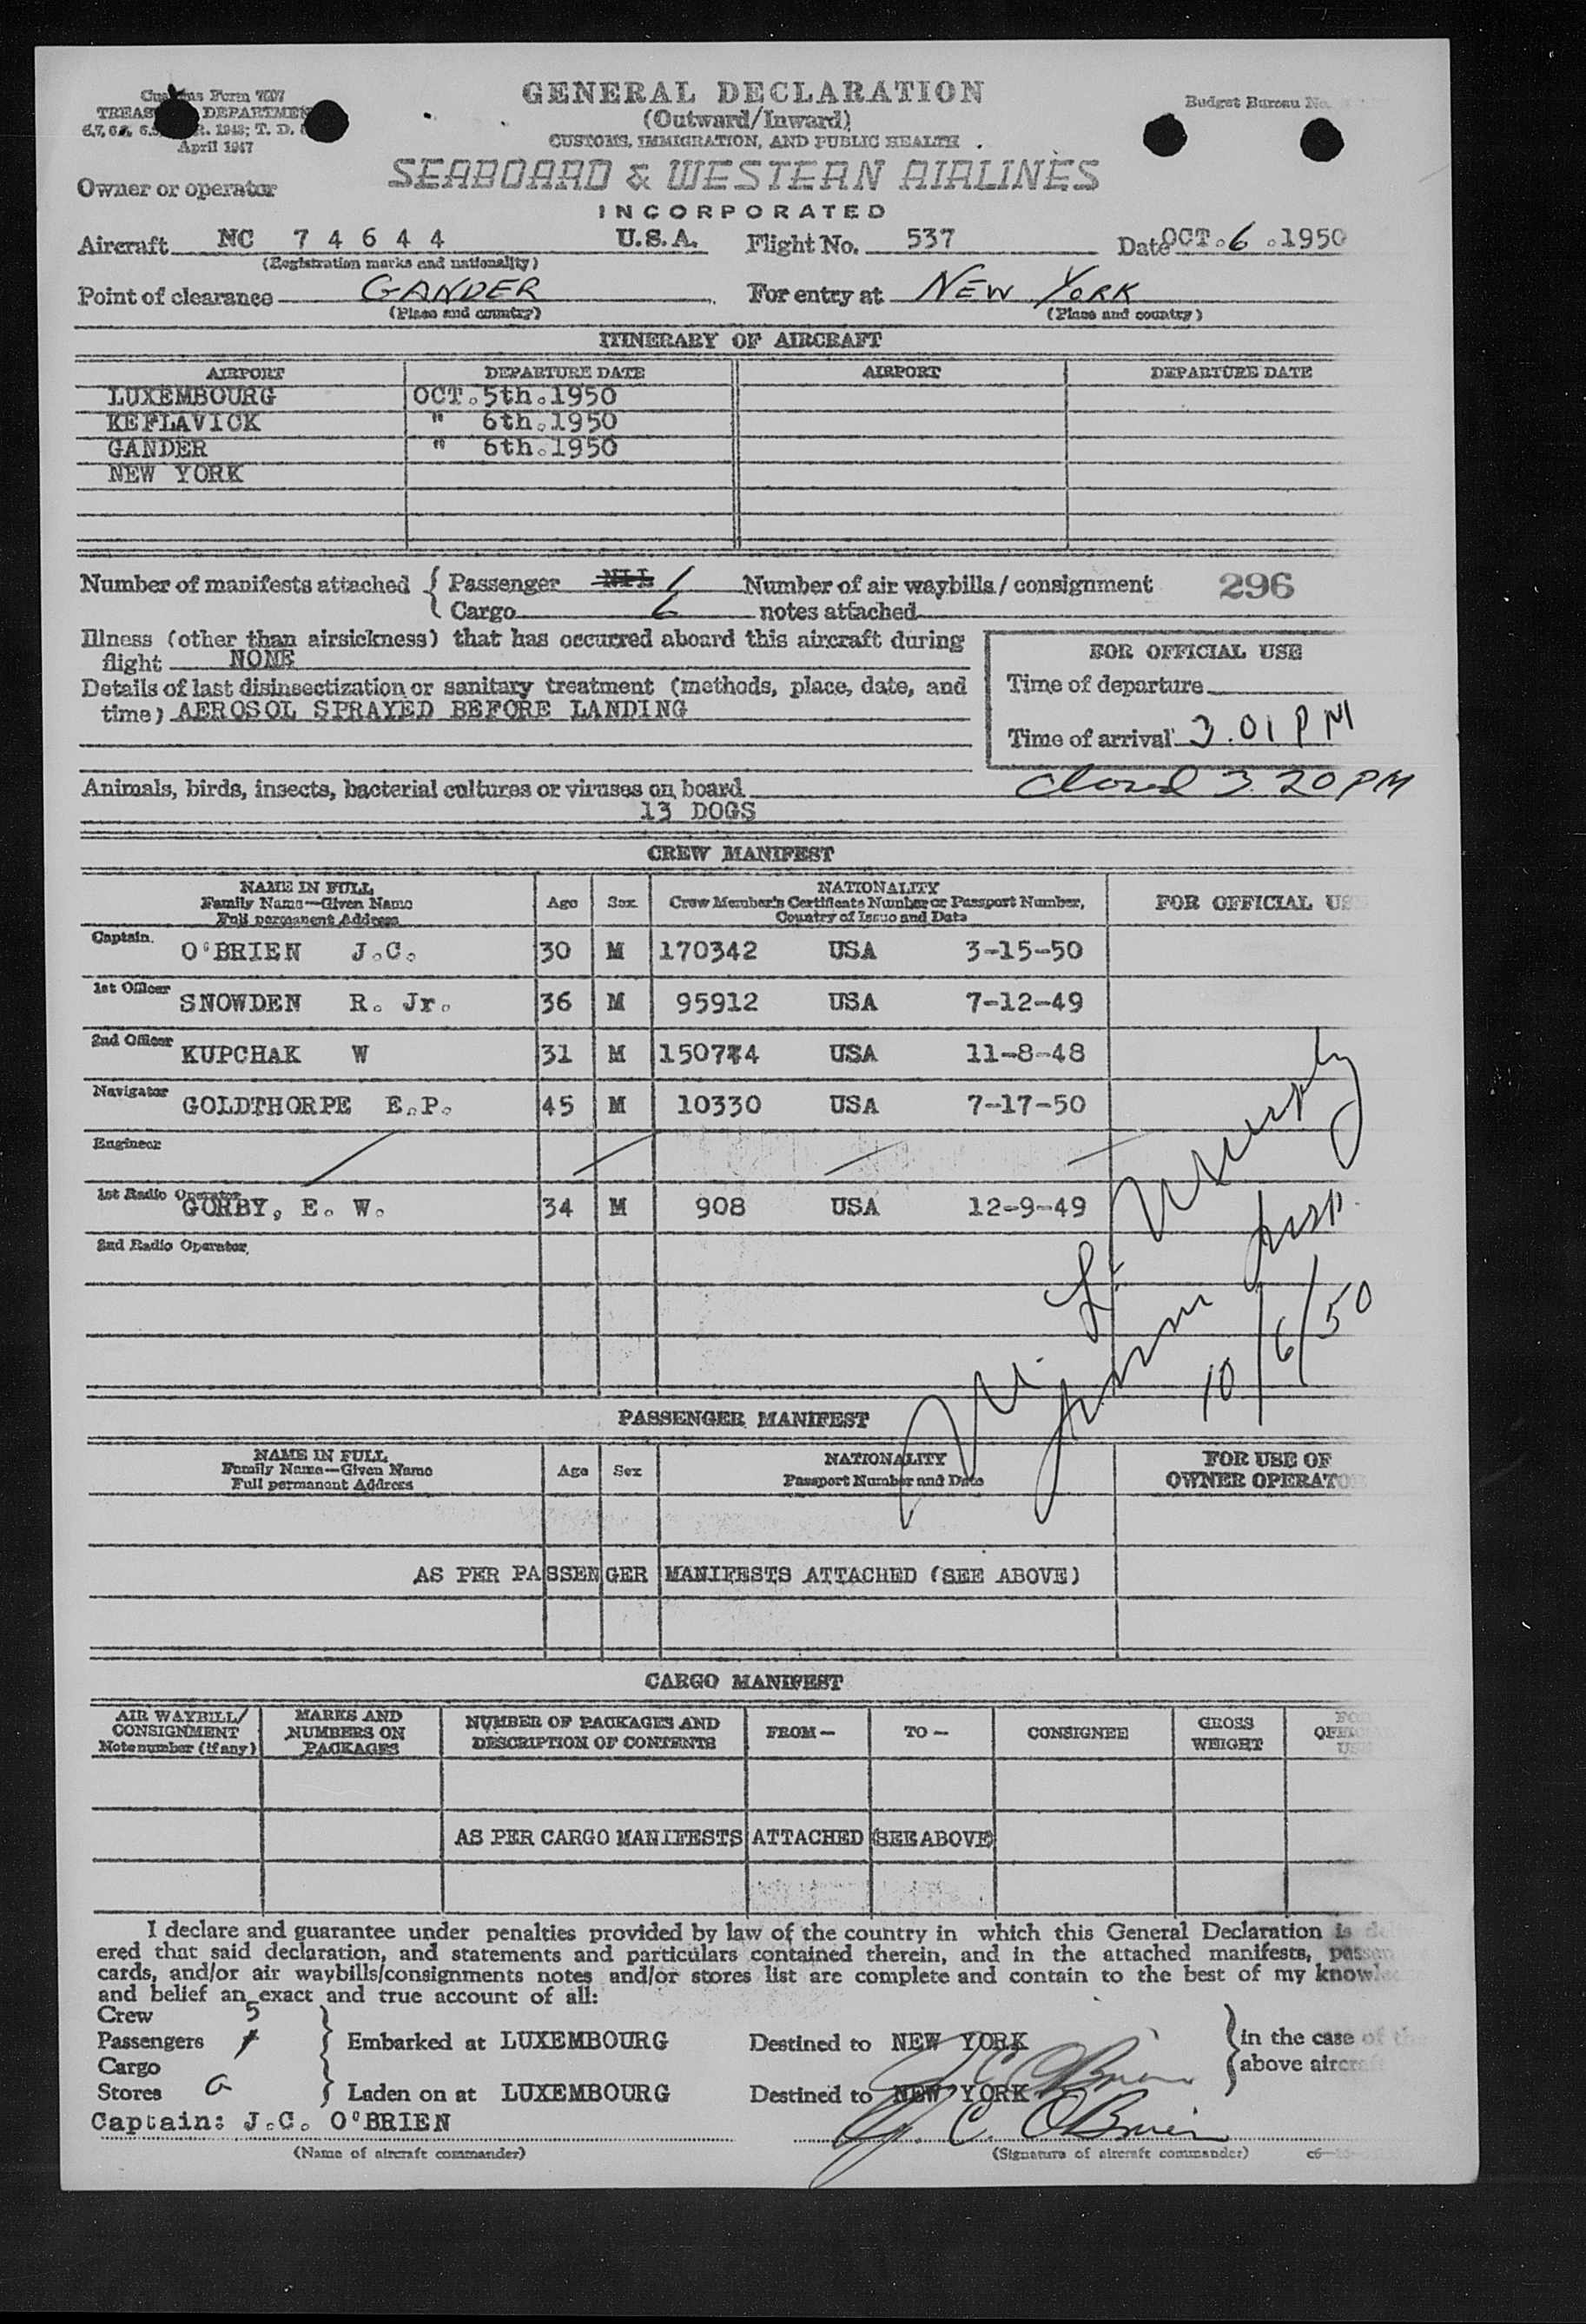 GENERAL DECLARATION
(Outward/Inward)
CUSTOMS, IMMIGRATION, AND PUBLIC HEALTH
Customs Form 7507
TREASURY DEPARTMENT
April 1947
Budget Bureau No.
Owner or operator
SEABOARD & WESTERN AIRLINES
INCORPORATED
Aircraft NC 7 4 6 4 4 U.S.A. Flight No. 537 Date OCT. 6 .1950
(Registration marks and nationality)
Point of clearance GANDER For entry at NEW YORK
(Place and country) (Place and country)
ITINERARY OF AIRCRAFT
AIRPORT DEPARTURE DATE AIRPORT DEPARTURE DATE
LUXEMBOURG OCT. 5th.1950
KEFLAVICK " 6th.1950
GANDER " 6th.1950
NEW YORK
Number of manifests attached { Passenger NIL 1 Number of air waybills / consignment 296
Cargo 6 notes attached
Illness (other than airsickness) that has occurred aboard this aircraft during
flight NONE
FOR OFFICIAL USE
Details of last disinsectization or sanitary treatment (methods, place, date, and
time) AEROSOL SPRAYED BEFORE LANDING
Time of departure
Time of arrival 3.01 PM
closed 3 20 PM
Animals, birds, insects, bacterial cultures or viruses on board
13 DOGS
CREW MANIFEST
NAME IN FULL
Family Name—Given Name
Full permanent Address
Age Sex
NATIONALITY
Crew Member's Certificate Number or Passport Number,
Country of Issue and Date
FOR OFFICIAL US
Captain. O'BRIEN J.C. 30 M 170342 USA 3-15-50
1st Officer SNOWDEN R. Jr. 36 M 95912 USA 7-12-49
2nd Officer KUPCHAK W 31 M 150744 USA 11-8-48
Navigator GOLDTHORPE E.P. 45 M 10330 USA 7-17-50
Engineer
1st Radio Operator GORBY, E. W. 34 M 908 USA 12-9-49
2nd Radio Operator
M. L. Murphy
Imm Insp.
10/6/50
PASSENGER MANIFEST
NAME IN FULL
Family Name—Given Name
Full permanent Address
Age Sex
NATIONALITY
Passport Number and Date
FOR USE OF
OWNER OPERATO
AS PER PASSENGER MANIFESTS ATTACHED (SEE ABOVE)
CARGO MANIFEST
AIR WAYBILL/
CONSIGNMENT
Note number (if any)
MARKS AND
NUMBERS ON
PACKAGES
NUMBER OF PACKAGES AND
DESCRIPTION OF CONTENTS
FROM— TO— CONSIGNEE
GROSS
WEIGHT
FOR
AS PER CARGO MANIFESTS ATTACHED (SEE ABOVE)
I declare and guarantee under penalties provided by law of the country in which this General Declaration is del
ered that said declaration, and statements and particulars contained therein, and in the attached manifests, passen
cards, and/or air waybills/consignments notes and/or stores list are complete and contain to the best of my knowle
and belief an exact and true account of all:
Crew 5
Passengers Embarked at LUXEMBOURG Destined to NEW YORK in the case of the
Cargo above aircraft
Stores Laden on at LUXEMBOURG Destined to NEW YORK
J C O'Brien
Captain: J.C. O'BRIEN J. C. O'Brien
(Name of aircraft commander) (Signature of aircraft commander)